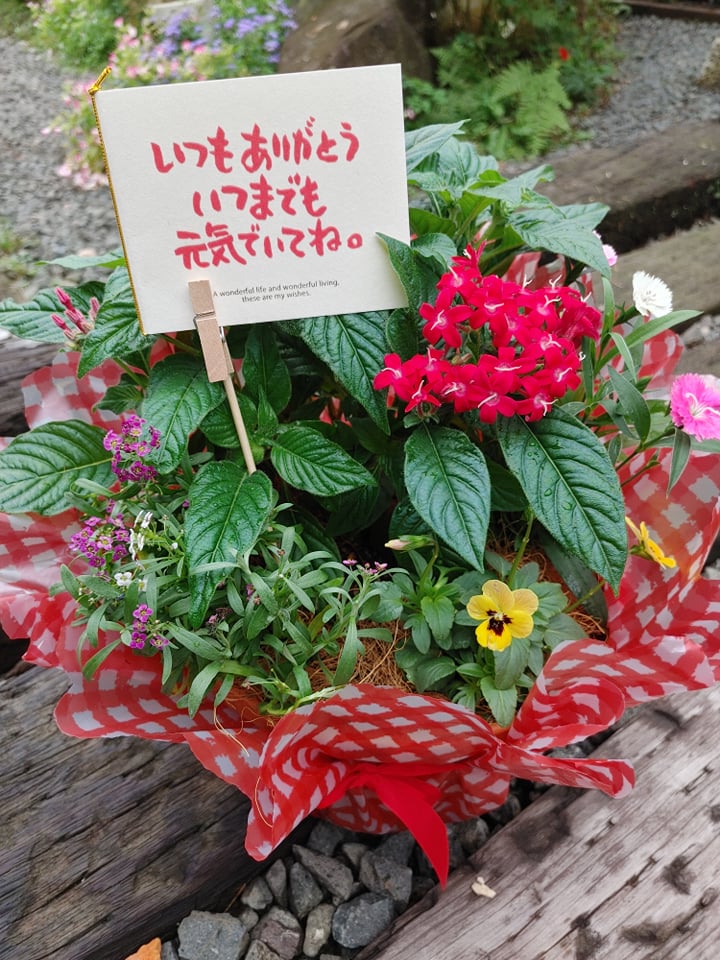 いつもありがとう
いつまでも
元気でいてね。
A wonderful life and wonderful living,
these are my wishes.